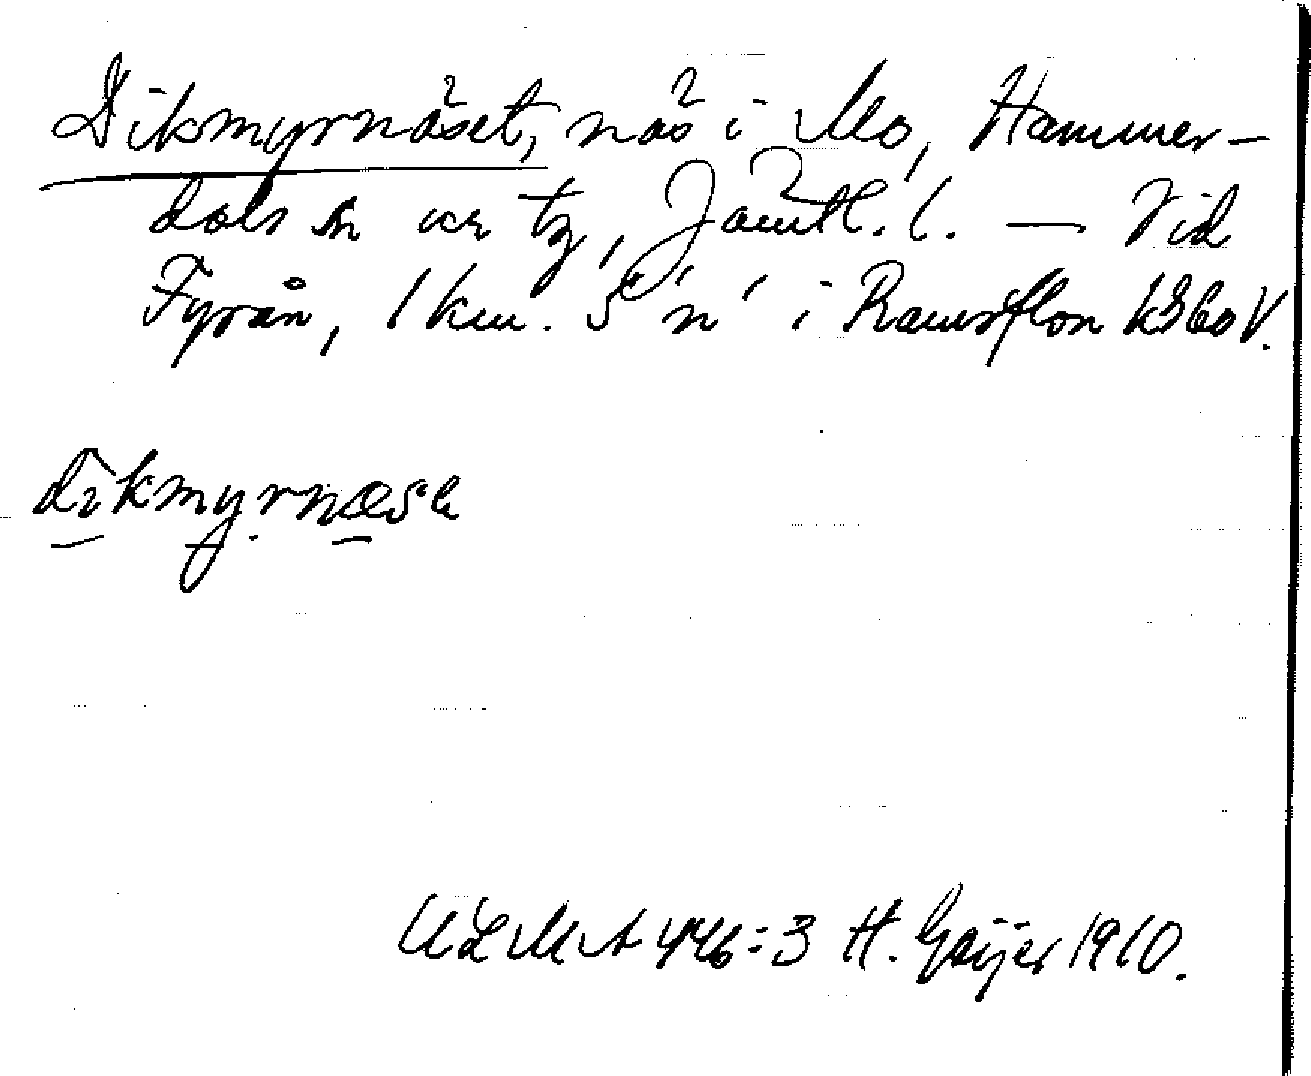 Dikmyrnäset, näs i Mo, Hammer-
dals sn och tg, Jämtl. l. — Vid
Fyrån, 1 km. S "n" i Ramsflon k 360 V.
dikmyrnæsɘ
ULMA 446:3 H. Geijer 1910.